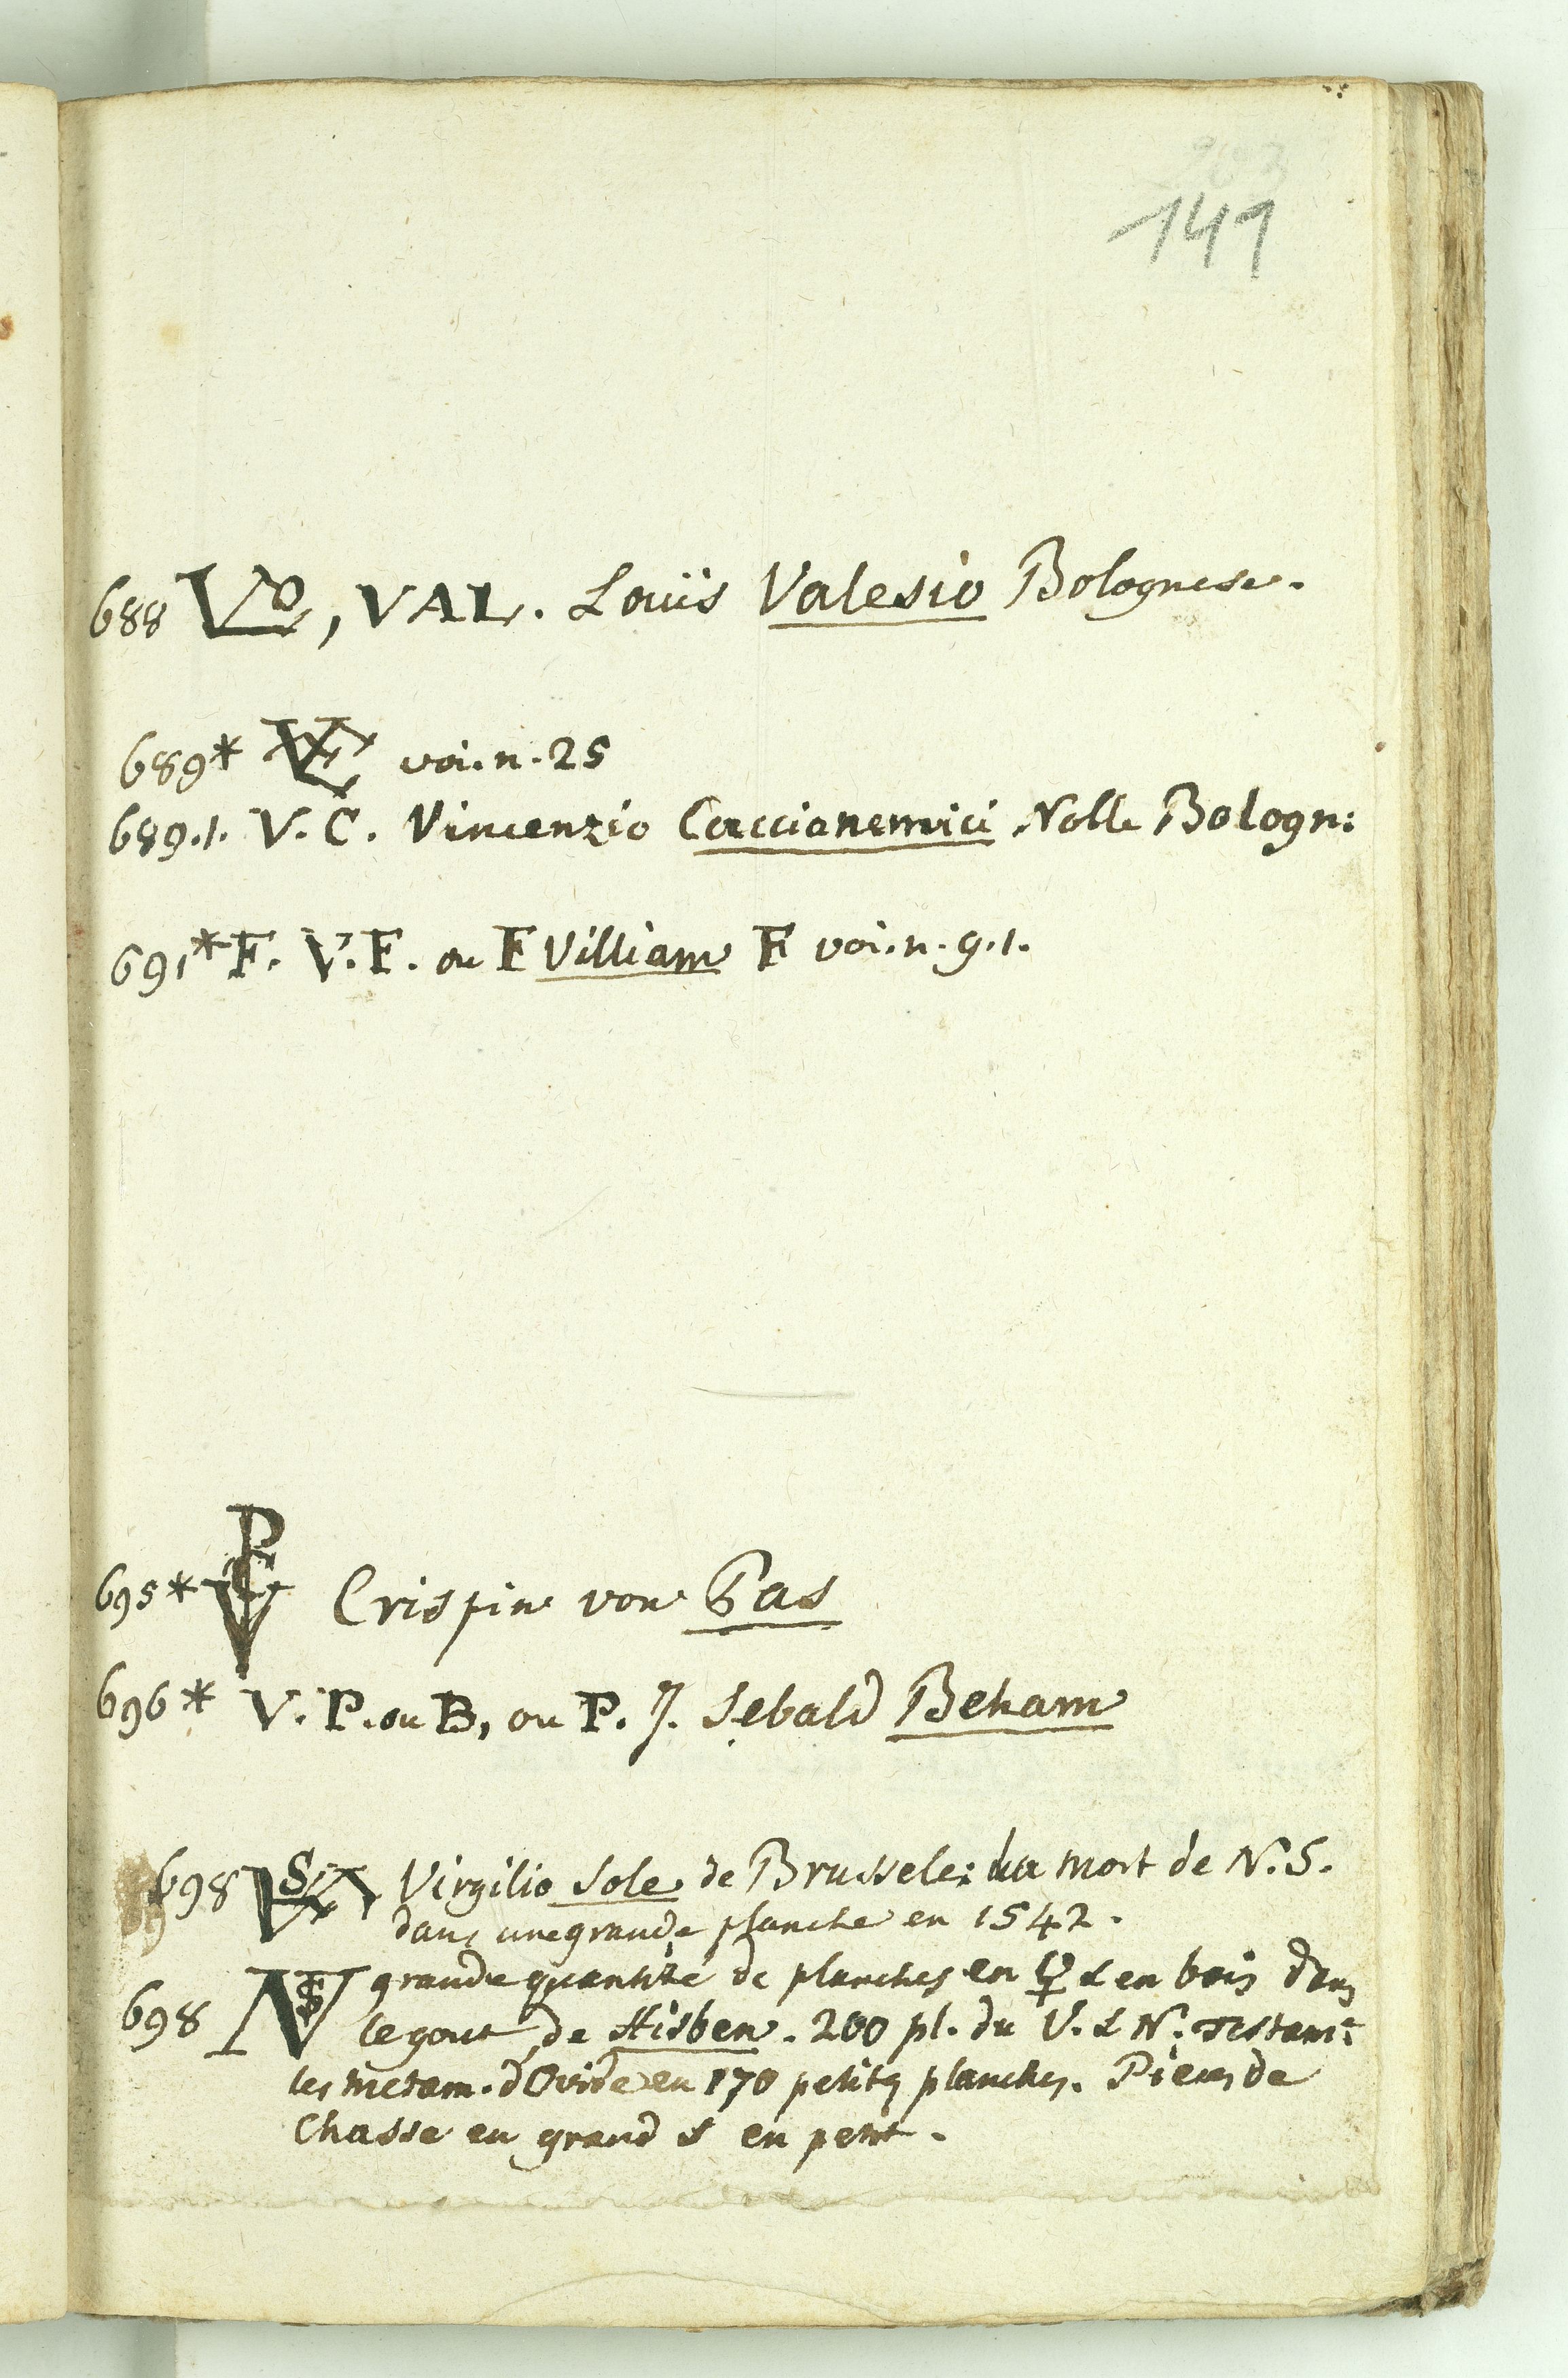 141
688 Vo, VAL. Louïs Valesio Bolognese.
689* voi. n. 25
689.1. V. C. Vincenzio Caccianemici Nolle Bologn:
691* F. V. F. ou F Villiam F voi. n. 9.1.
695* PCV Crispin von Pas
696* V. P. ou B, ou P. J. Sebald Beham
698 VS Virgilio Sole de Brussele: la mort de N. S.
dans une grande planche en 1542.
grande quantité de planches en ♀ & en bois dans
698 le gout de Hisben. 200 pl. du V. & N. Testamt
les metam. d'Ovide en 170 petites planches. Pieces de
Chasse en grand & en petit.